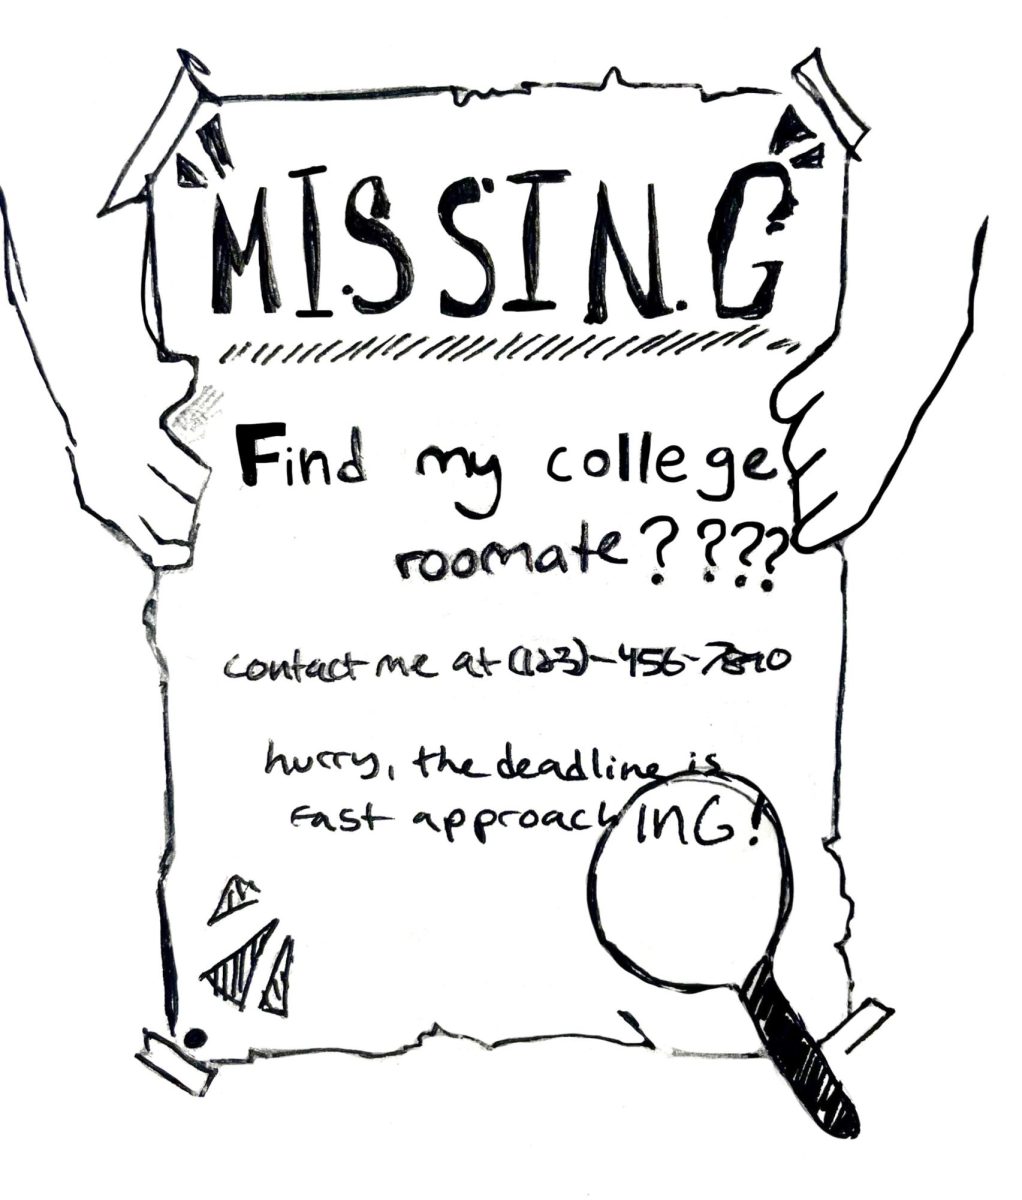 MISSING
Find my college
roomate????
contact me at (123)-456-7890
hurry, the deadline is
Fast approachING!